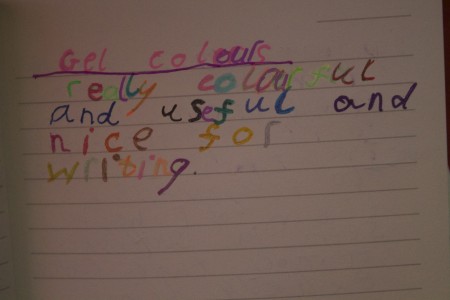 Gel colours
really colourful
and useful and
nice for
writing.